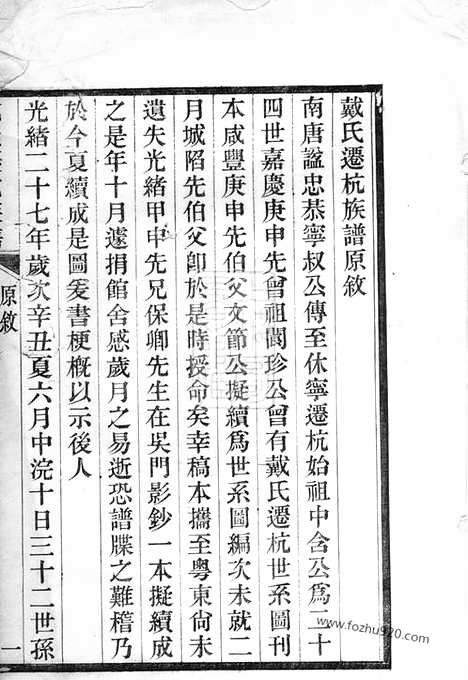 戴氏遷杭族譜原敘
南唐謚忠恭寧叔公傳至休寧遷杭始祖中含公爲二十
四世嘉慶庚申先曾祖閬珍公曾有戴氏遷杭世系圖刊
本咸豐庚申先伯父文節公擬續爲世系圖編次未就二
月城陷先伯父卽於是時授命矣幸稿本攜至粤東尙未
遺失光緒甲申先兄保卿先生在吳門影鈔一本擬續成
之是年十月遽捐館舍感歲月之易逝恐譜牒之難稽乃
於今夏續成是圖爰書梗概以示後人
光緒二十七年歲次辛丑夏六月中浣十日三十二世孫
原敘
一
www.fozhu920.com